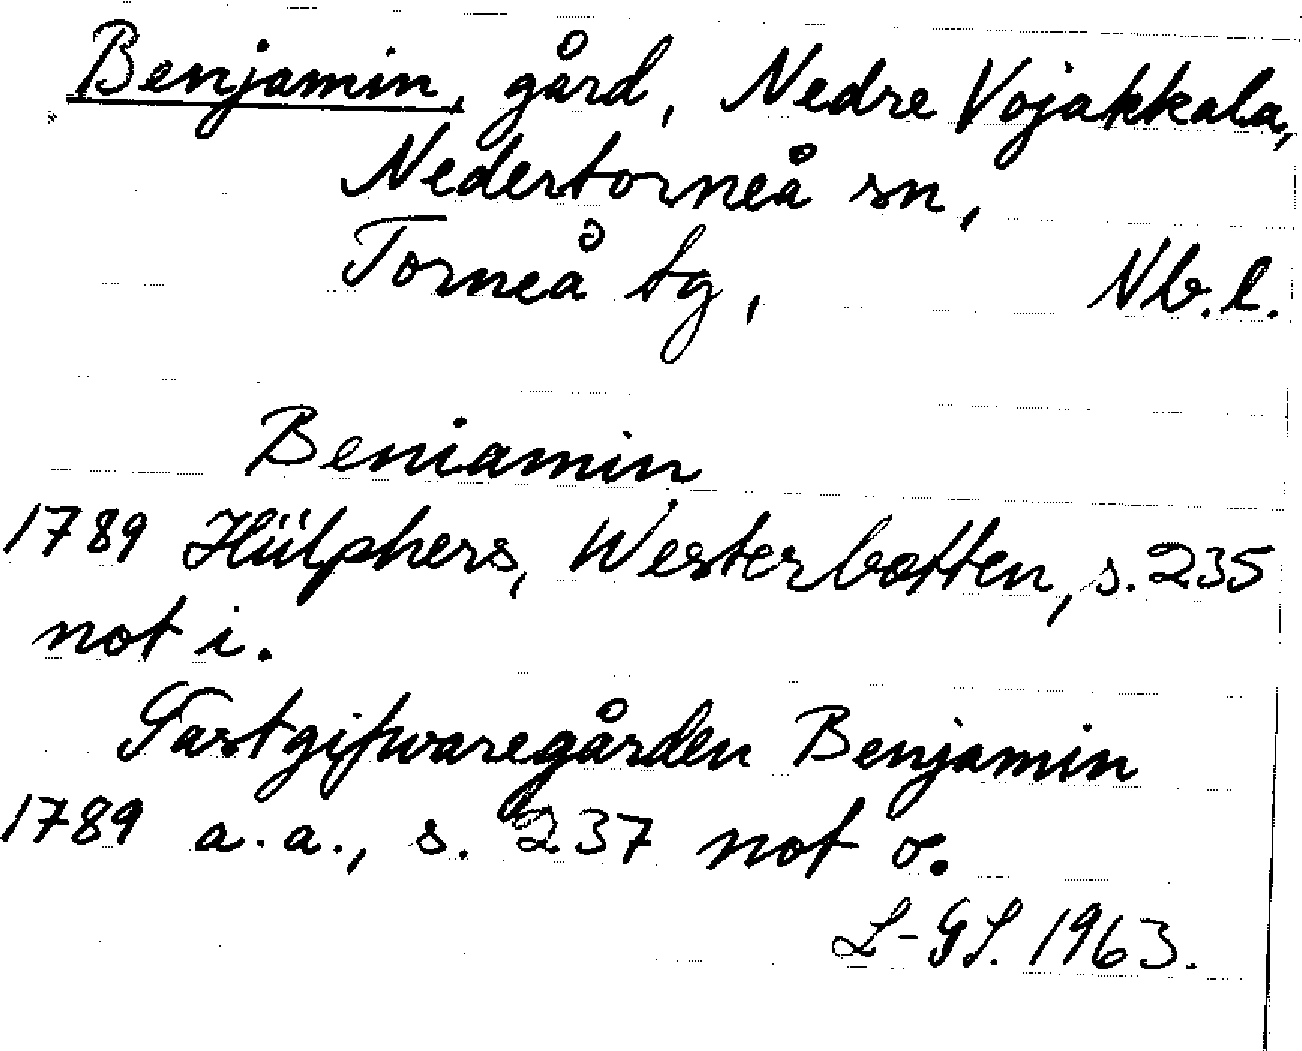 Benjamin, gård, Nedre Vojakkala,
Nedertorneå sn,
Torneå tg, Nb.l.
Beniamin
1789 Hülphers, Westerbotten, s. 235
not i.
Gastgifwaregården Benjamin
1789 a.a., s. 237 not o.
L-GL. 1963.